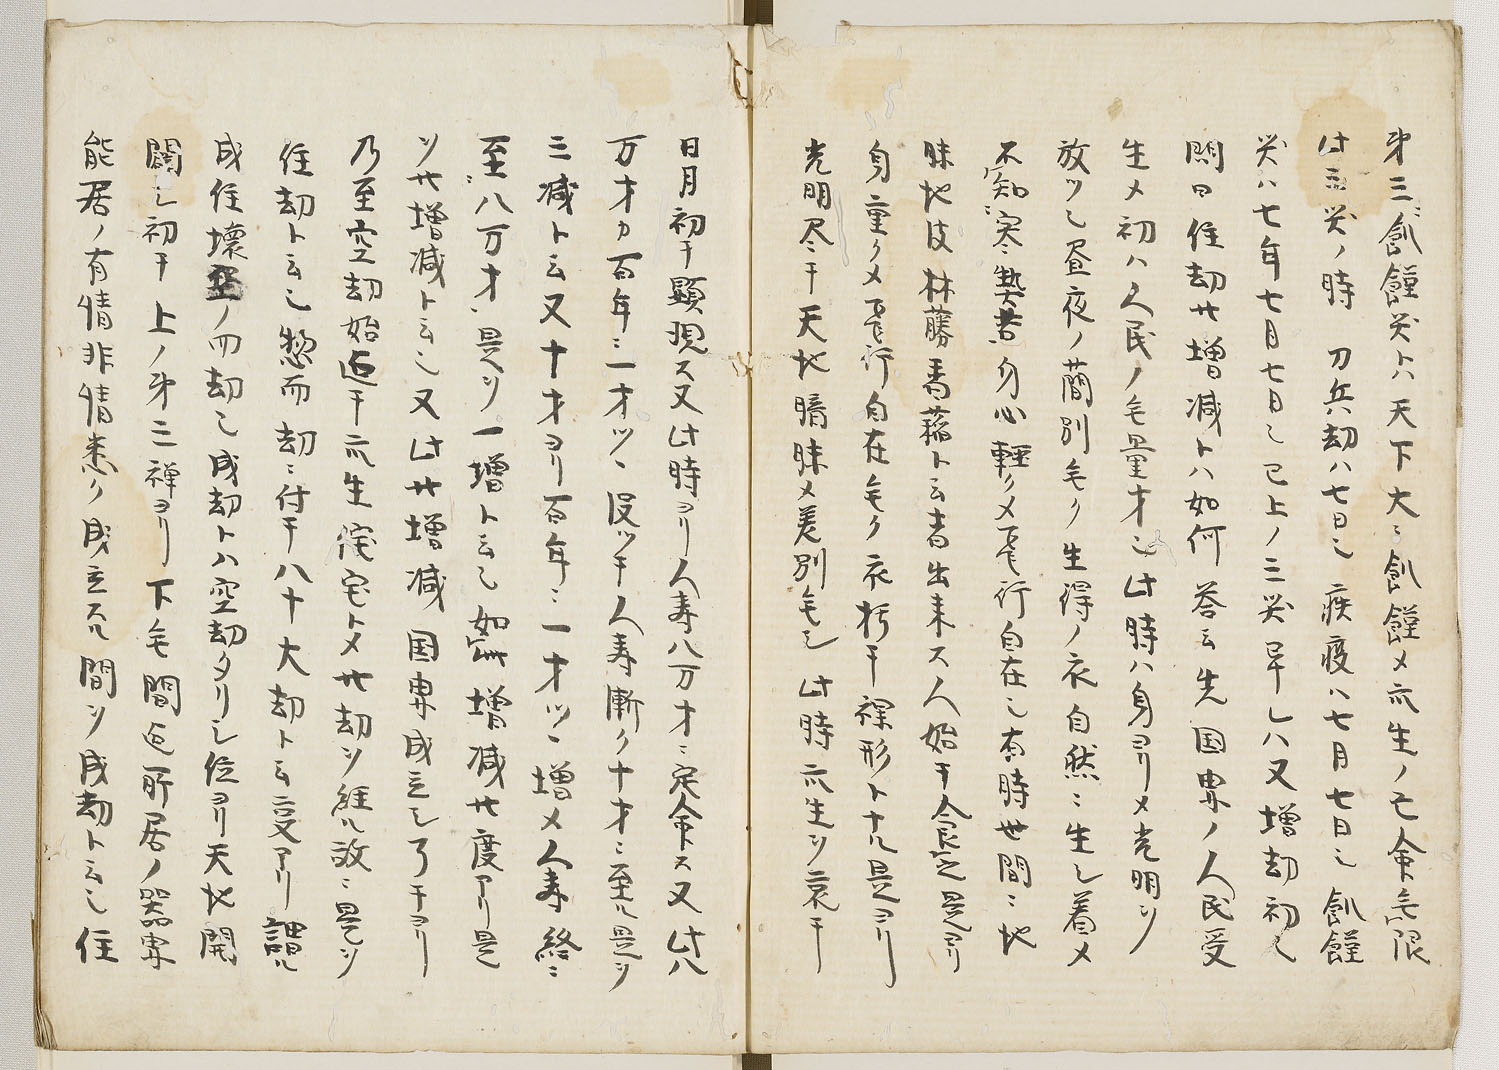 第三飢饉災トハ天下大ニ飢饉メ衆生ノ亡命無限
此三災ノ時 刀兵劫ハ七日也 疾疫ハ七月七日也 飢饉
災ハ七年七月七日也 已上ノ三災早レハ又増劫初ル
問曰住劫廿増減トハ如何 答云先国界ノ人民受
生メ初ハ人民ノ毛量才也此時ハ身ヨリメ光明ヲ
放ツ也昼夜ノ簡別無ク生得ノ衣自然ニ生シ着メ
不知寒熱苦身心軽クメ飛行自在也有時世間ニ地
味地皮林藤香稲ト云者出来ス人始テ食之是ヨリ
身重クメ飛行自在無ク衣朽テ裸形トナル是ヨリ
光明尽テ天地暗昧メ差別無シ此時衆生ヲ哀テ
日月初テ顕現ス又此時ヨリ人寿八万才ニ定命ス又此八
万才カ百年ニ一才ツヽ没ツテ人寿漸ク十才ニ至ル是ヲ
三減ト云又十才ヨリ百年ニ一才ツヽ増メ人寿終ニ
至八万才是ヲ一増ト云也如此増減廿度アリ是
ヲ廿増減ト云也又此廿増減国界成立シ了テヨリ
乃至空劫始迄テ衆生依宅トメ廿劫ヲ経ル故ニ是ヲ
住劫ト云也惣而劫ニ付テ八十大劫ト云事アリ謂ル
成住壊空ノ四劫也成劫トハ空劫タリシ位ヨリ天地開
闢シ初テ上ノ第三禅ヨリ下無間迄所居ノ器界
能居ノ有情非情悉ク成立スル間ヲ成劫ト云也住